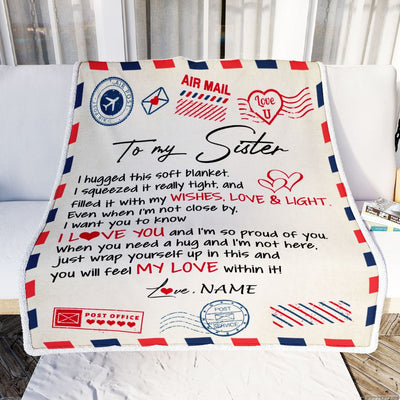 AIR POST
AIR MAIL
Love
U
To my Sister
I hugged this soft blanket.
I squeezed it really tight, and
filled it with my WISHES, LOVE & LIGHT.
Even when I'm not close by,
I want you to know
I LOVE YOU and I'm so proud of you.
When you need a hug and I'm not here,
just wrap yourself up in this and
you will feel MY LOVE within it!
Love, NAME
POST OFFICE
POST
SERVICE